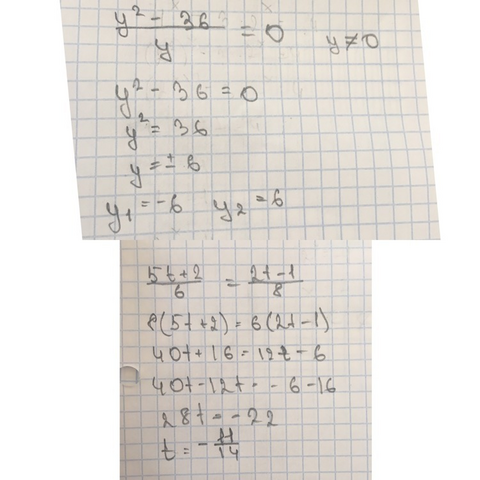 (y² - 36)/y = 0   y ≠ 0
y² - 36 = 0
y² = 36
y = ± 6
y₁ = -6   y₂ = 6
(5t+2)/6 = (2t-1)/8
8(5t+2) = 6(2t-1)
40t+16 = 12t - 6
40t - 12t = - 6 - 16
28t = - 22
t = - 11/14